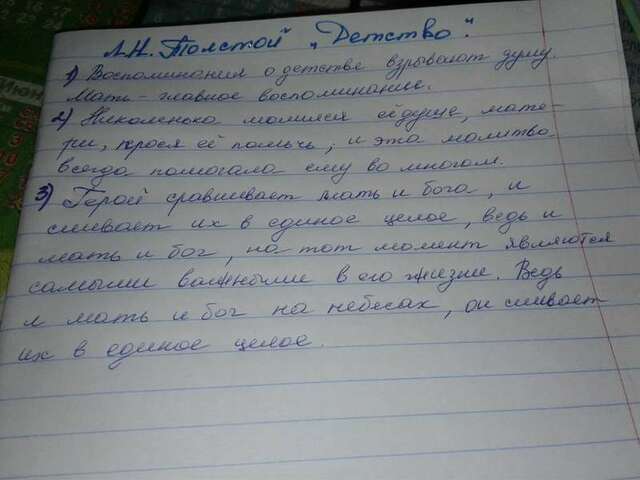 Л.Н. Толстой „Детство".
1) Воспоминания о детстве взрывают душу.
Мать - главное воспоминание.
2) Николенька молился её душе, мате-
ри, прося её помочь, и эта молитва
всегда помогала ему во многом.
3) Герой сравнивает мать и бога, и
сливает их в единое целое, ведь и
мать и бог, на тот момент являются
самыми важными в его жизни. Ведь
и мать и бог на небесах, он сливает
их в единое целое.